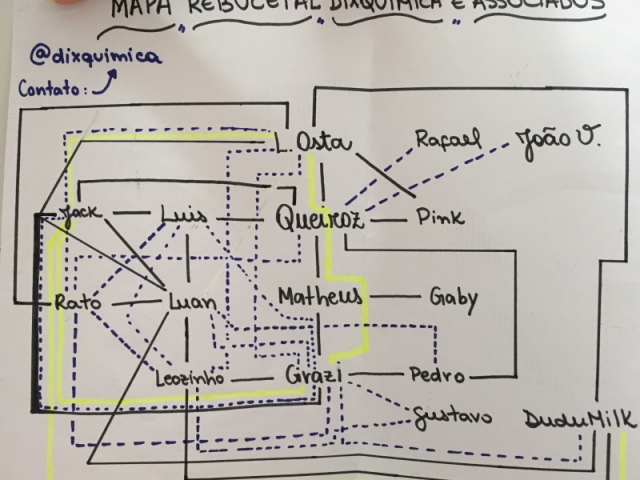 MAPA REBUCETAL DIXQUIMICA E ASSOCIADOS
@dixquimica
Contato:
L. Osta Rafael João V.
Jack Luis Queiroz Pink
Rato Luan Matheus Gaby
Leozinho Grazi Pedro
Gustavo DuduMilk